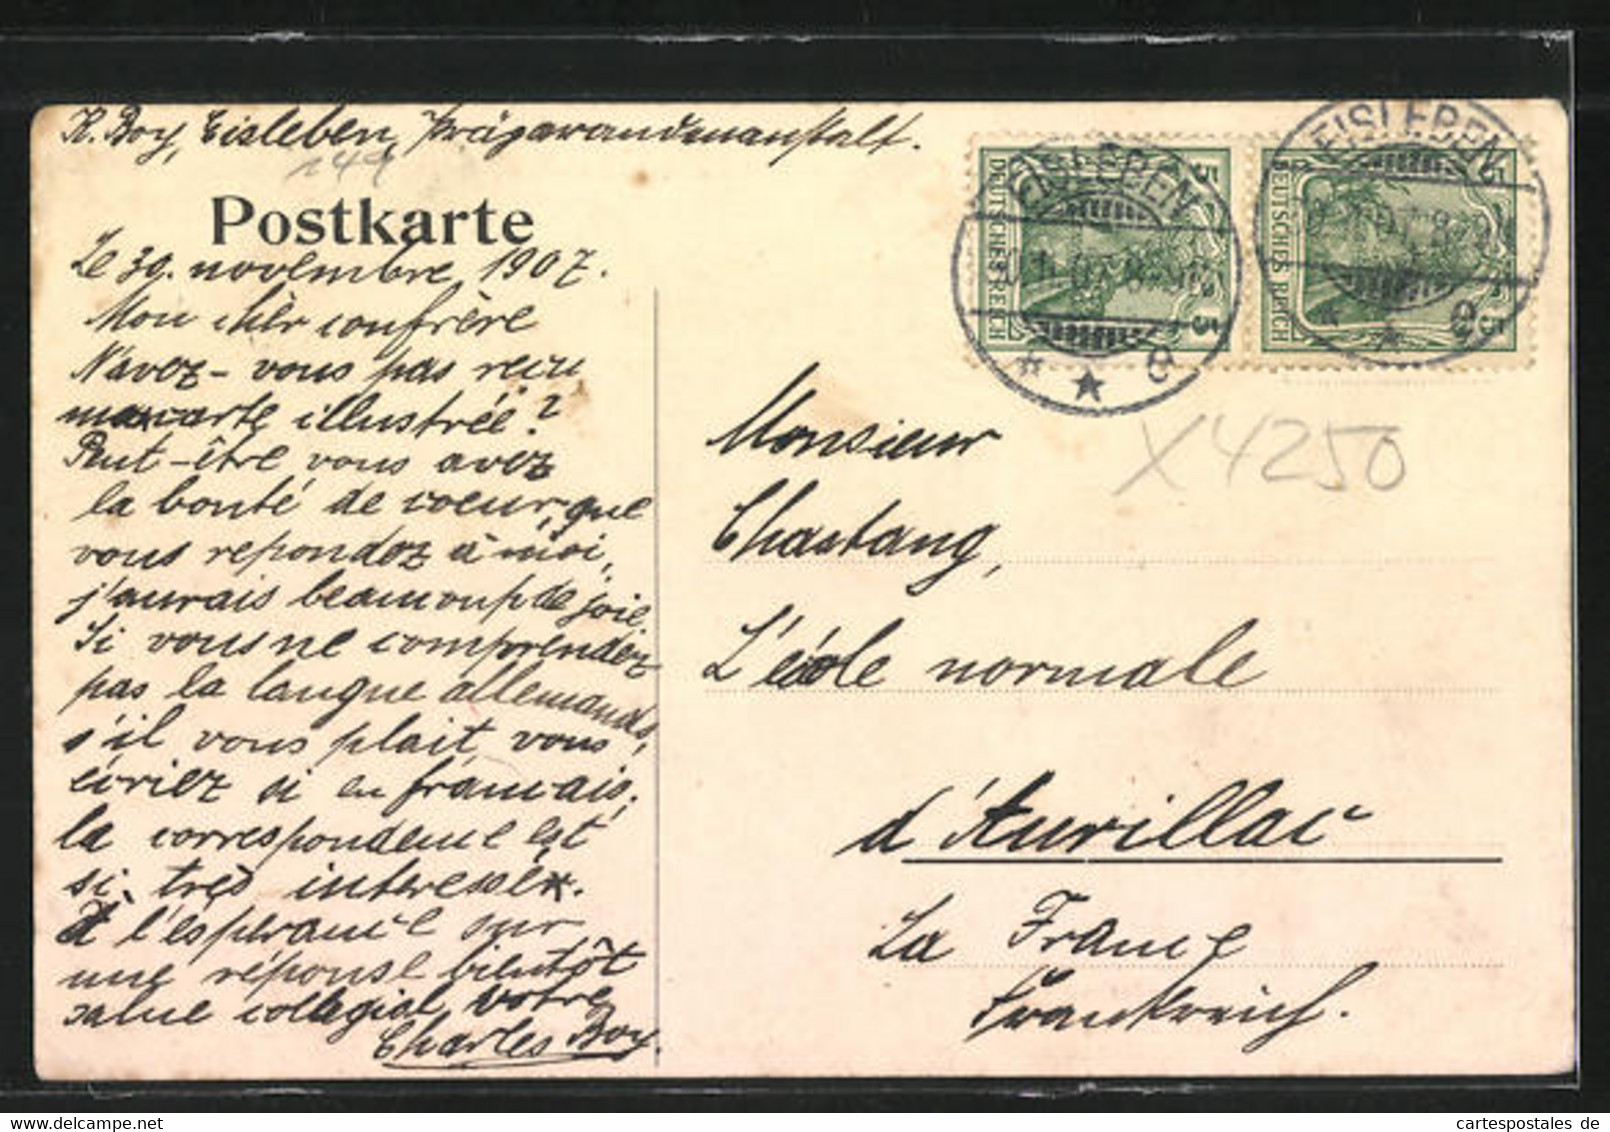 K. Boy, Eisleben, Präparandenanstalt.
149
Postkarte
Le 30. novembre 1907.
Mon chèr confrère
N'avez-vous pas reçu
ma carte illustrée?
Peut-être vous avez
la bonté de coeur, que
vous repondez à moi,
j'aurais beaucoup de joie.
Si vous ne comprendez
pas la langue allemande,
s'il vous plait, vous
écriez si en francais,
la correspondence est
si très interessé.
A l'espérance sur
une réponse bientôt
salue collegial votre
Charles Boy.
EISLEBEN
DEUTSCHES REICH
5
5
e
EISLEBEN
DEUTSCHES REICH
5
5
e
X4250
Monsieur
Chastang,
L'école normale
d'Aurillac
La France
Frankreich.
cartespostales de